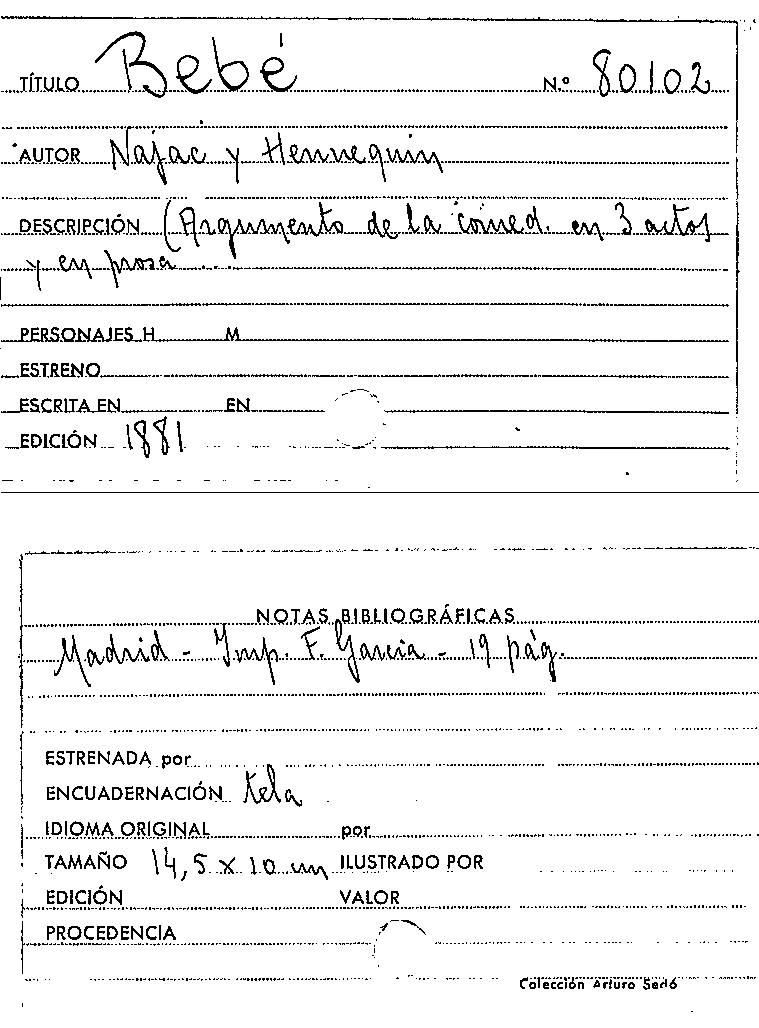 TÍTULO Bebé N.º 80102
AUTOR Najac y Hennequin
DESCRIPCIÓN (Argumento de la comed. en 3 actos
y en prosa ...
PERSONAJES H M
ESTRENO
ESCRITA EN EN
EDICIÓN 1881
NOTAS BIBLIOGRÁFICAS
Madrid - Imp. F. García - 19 pág.
ESTRENADA por
ENCUADERNACIÓN tela
IDIOMA ORIGINAL por
TAMAÑO 14,5 x 10 cm ILUSTRADO POR
EDICIÓN VALOR
PROCEDENCIA
Colección Arturo Sedó